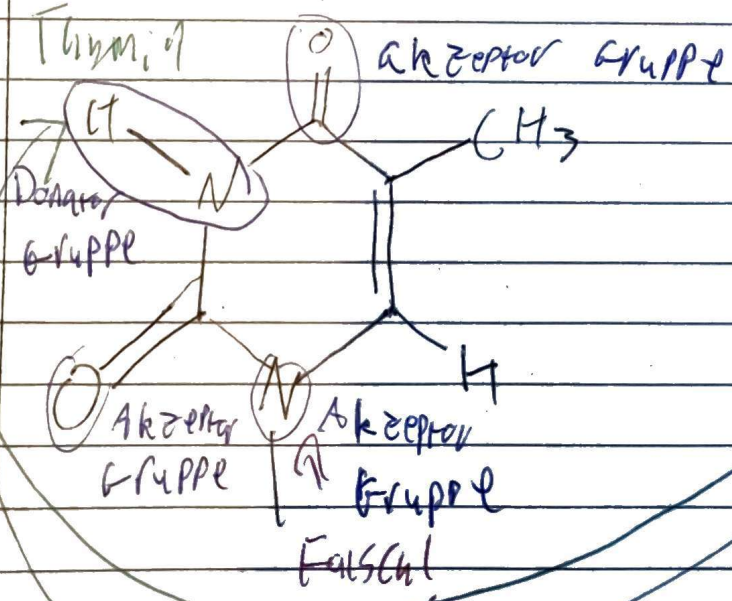 Thymin
O
Akzeptor Gruppe
H
CH3
N
Donator
Gruppe
H
O
N
Akzeptor
Gruppe
Akzeptor
Gruppe
Falsch